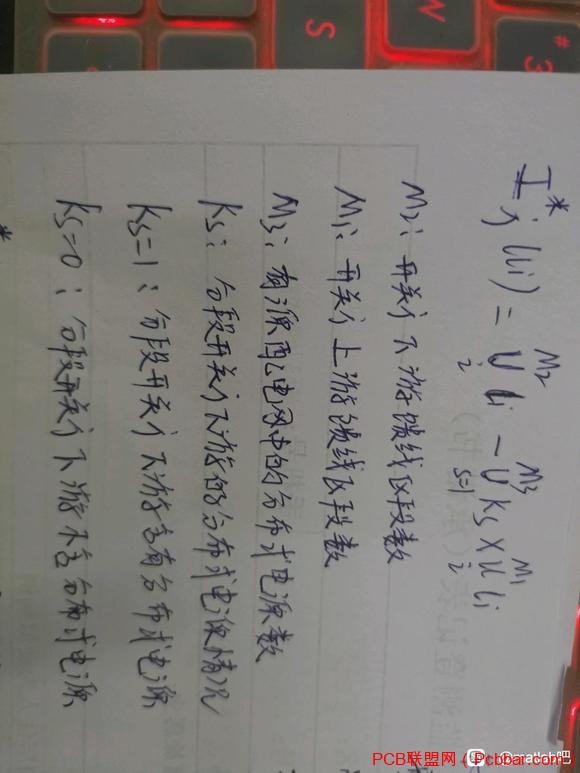 I*j(li) = U^M2_i li - U^M3_s=1 ks × U^M1_i li
M2: 开关j下游馈线区段数
M1: 开关j上游馈线区段数
M3: 有源配电网中的分布式电源数
ks: 分段开关j下游的分布式电源情况
ks=1: 分段开关j下游含有分布式电源
ks=0: 分段开关j下游不含分布式电源
*
S
W
#
3
@matlab吧
PCB联盟网 - Pcbbar.com